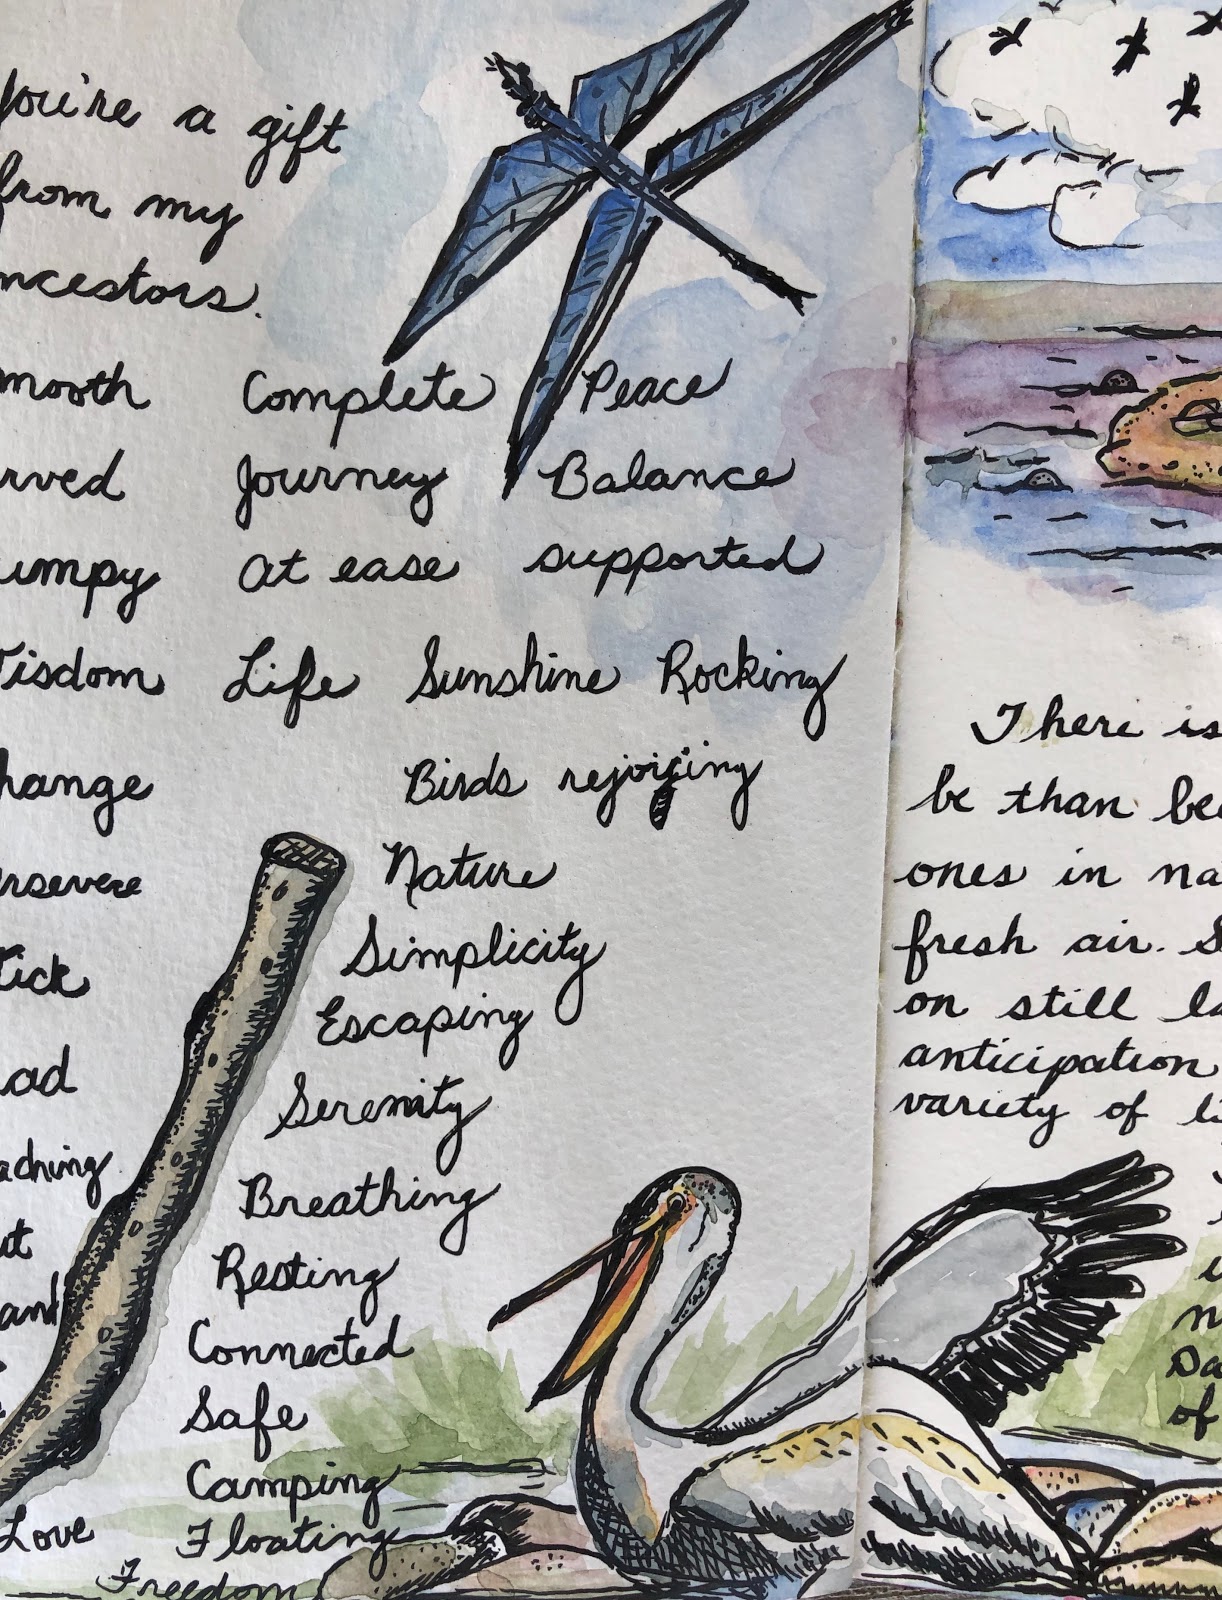 You're a gift
from my
ncestors.
mooth Complete Peace
rved Journey Balance
umpy at ease supported
isdom Life Sunshine Rocking
hange Birds rejoicing
rsevere Nature
tick Simplicity
Escaping
ad Serenity
aching Breathing
ut Resting
and Connected
Safe
Camping
Love Floating
Freedom
There is
be than bee
ones in na
fresh air. S
on still la
anticipation
variety of li
Da
of